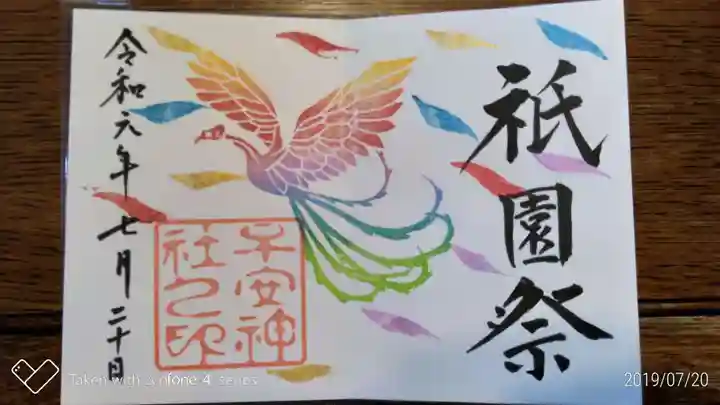 祇園祭
令和元年七月二十日
子安神
社之印
Taken with Zenfone 4 series
2019/07/20